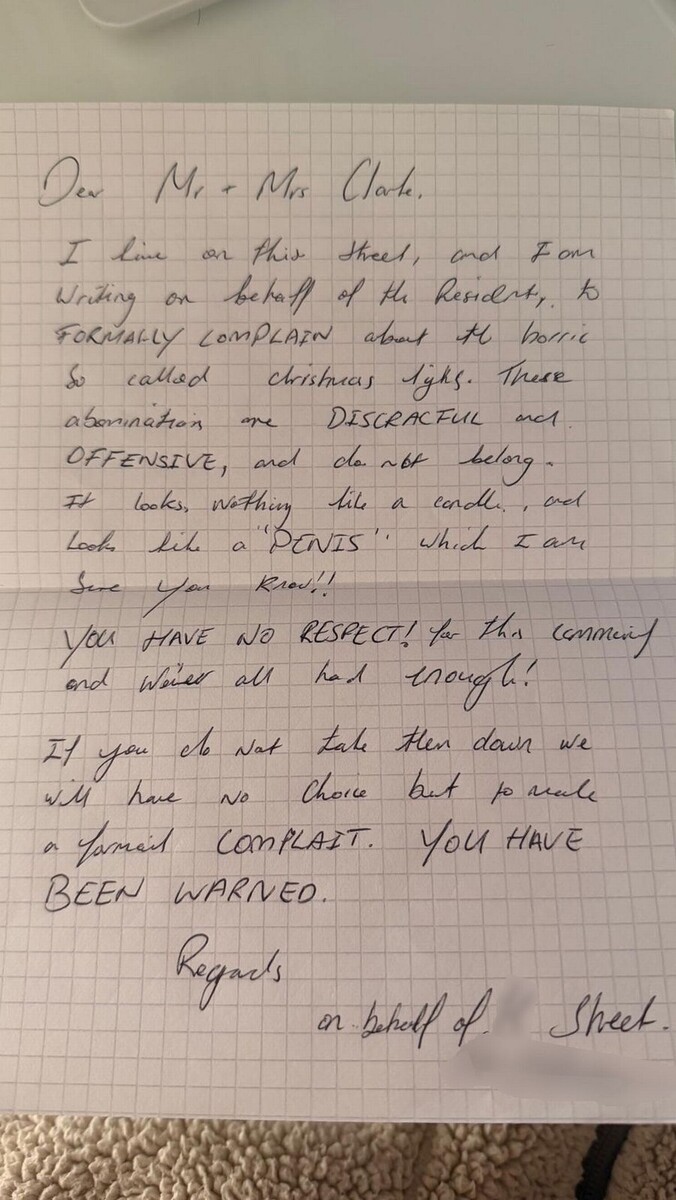 Dear Mr + Mrs Clarke.
I live on this street, and I am
Writing on behalf of the Residents, to
FORMALLY COMPLAIN about the horric
So called christmas lights. These
abominations are DISCRACFUL and
OFFENSIVE, and do not belong.
It looks, nothing like a candle, and
Looks like a "PENIS" which I am
Sure you know!!
YOU HAVE NO RESPECT! for this
and all had enough!
If you do not take them down we
will have no choice but to make
a formail COMPLAIT. YOU HAVE
BEEN WARNED.
Regards
on behalf of Street.